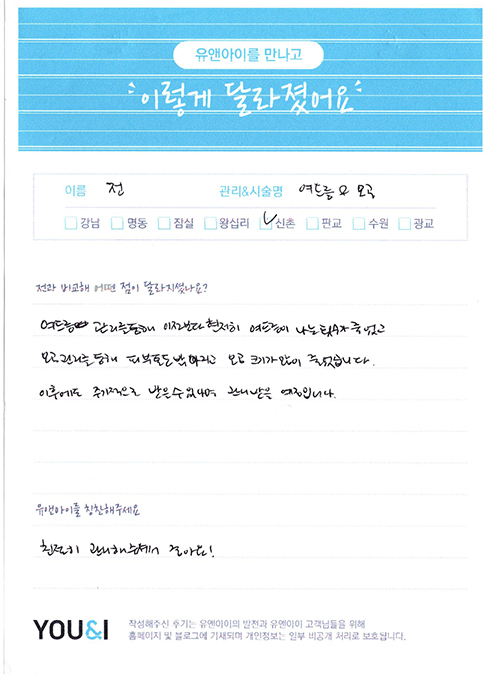 유앤아이를 만나고
이렇게 달라졌어요
이름 전 관리&시술명 여드름 & 모공
강남 명동 잠실 왕십리 신촌 판교 수원 광교
전과 비교해 어떤 점이 달라지셨나요?
여드름 관리를 통해 이전보다 현저히 여드름이 나는 횟수가 줄었고
모공관리를 통해 피부톤도 밝아지고 모공 크기가 많이 줄었습니다.
이후에도 주기적으로 받을 수 있다면 관리받을 예정입니다.
유앤아이를 칭찬해주세요
친절히 관리해주셔서 좋아요!
YOU&I 작성해주신 후기는 유앤아이의 발전과 유앤아이 고객님들을 위해
홈페이지 및 블로그에 기재되며 개인정보는 일부 비공개 처리로 보호됩니다.